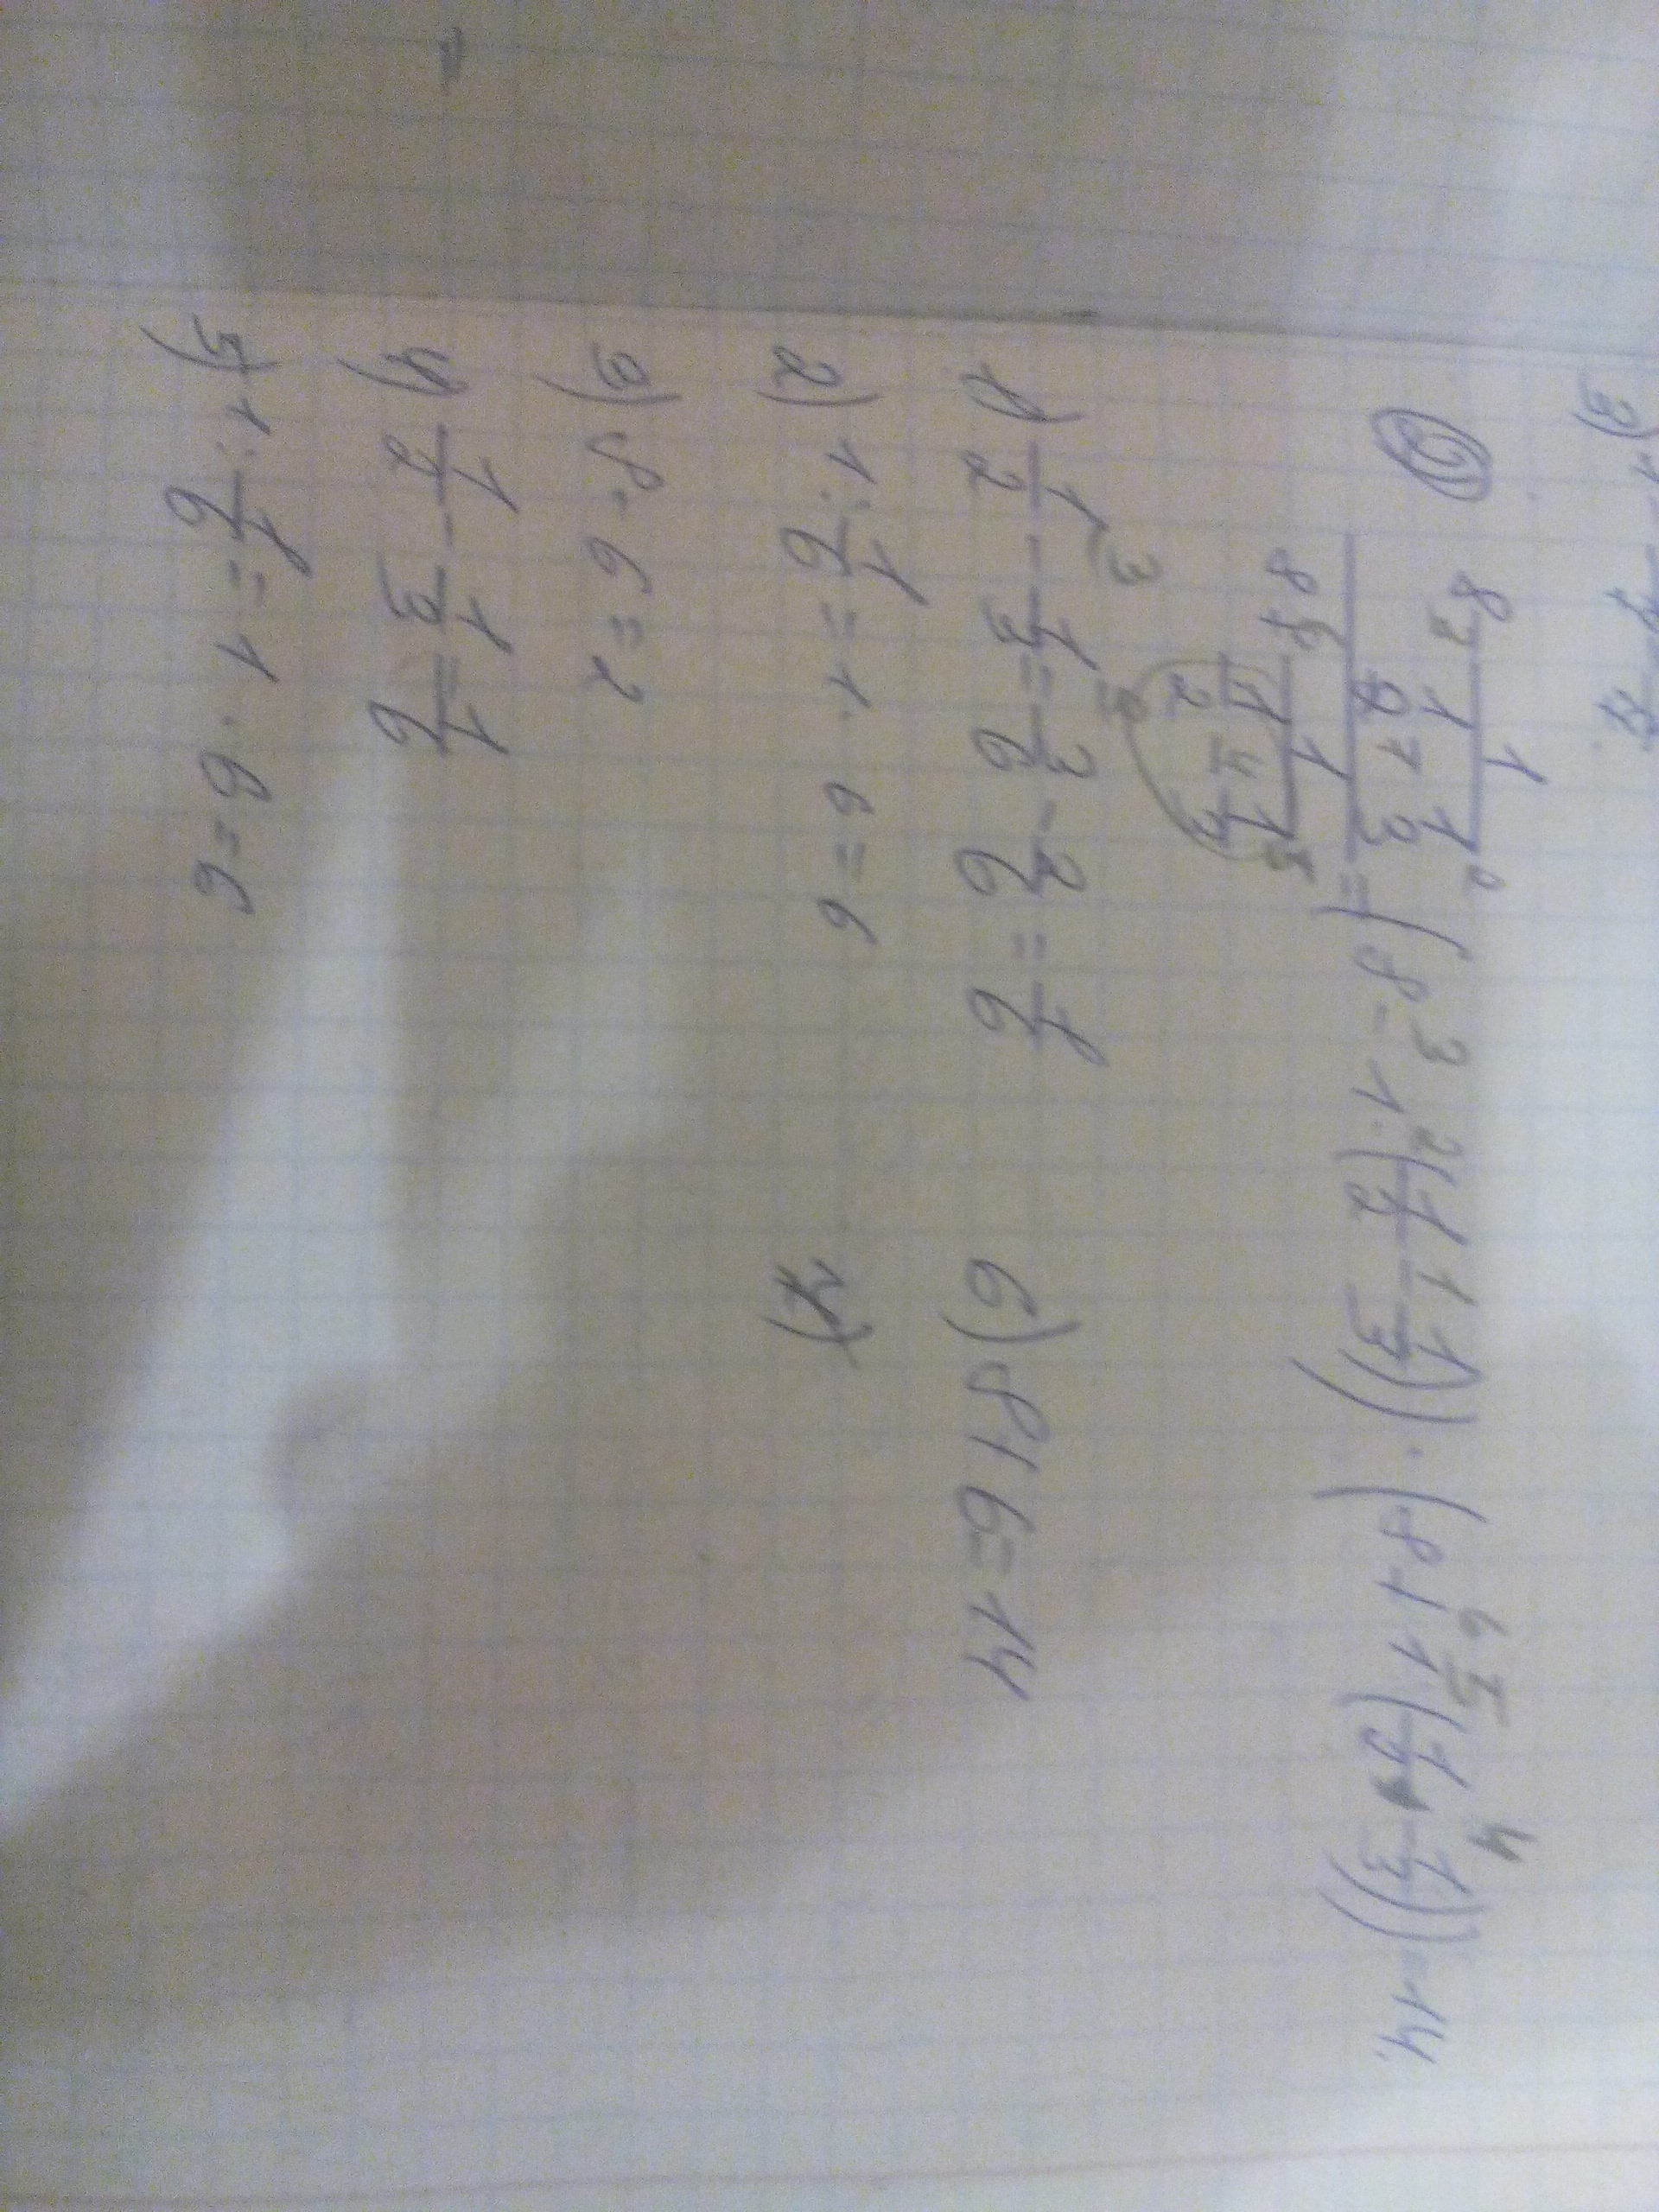 3) 1
8 - 1 / (1/2 - 1/3)
8 + 1 / (1/2 - 1/3) = (8 - 1 : (1/2 - 1/3)) : (8 + 1 : (1/2 - 1/3)) = 14.
1) 1/2 - 1/3 = 3/6 - 2/6 = 1/6
2) 1 : 1/6 = 1 · 6 = 6
3) 8 - 6 = 2
4) 1/2 - 1/3 = 1/6
5) 1 : 1/6 = 1 · 6 = 6
6) 8 + 6 = 14